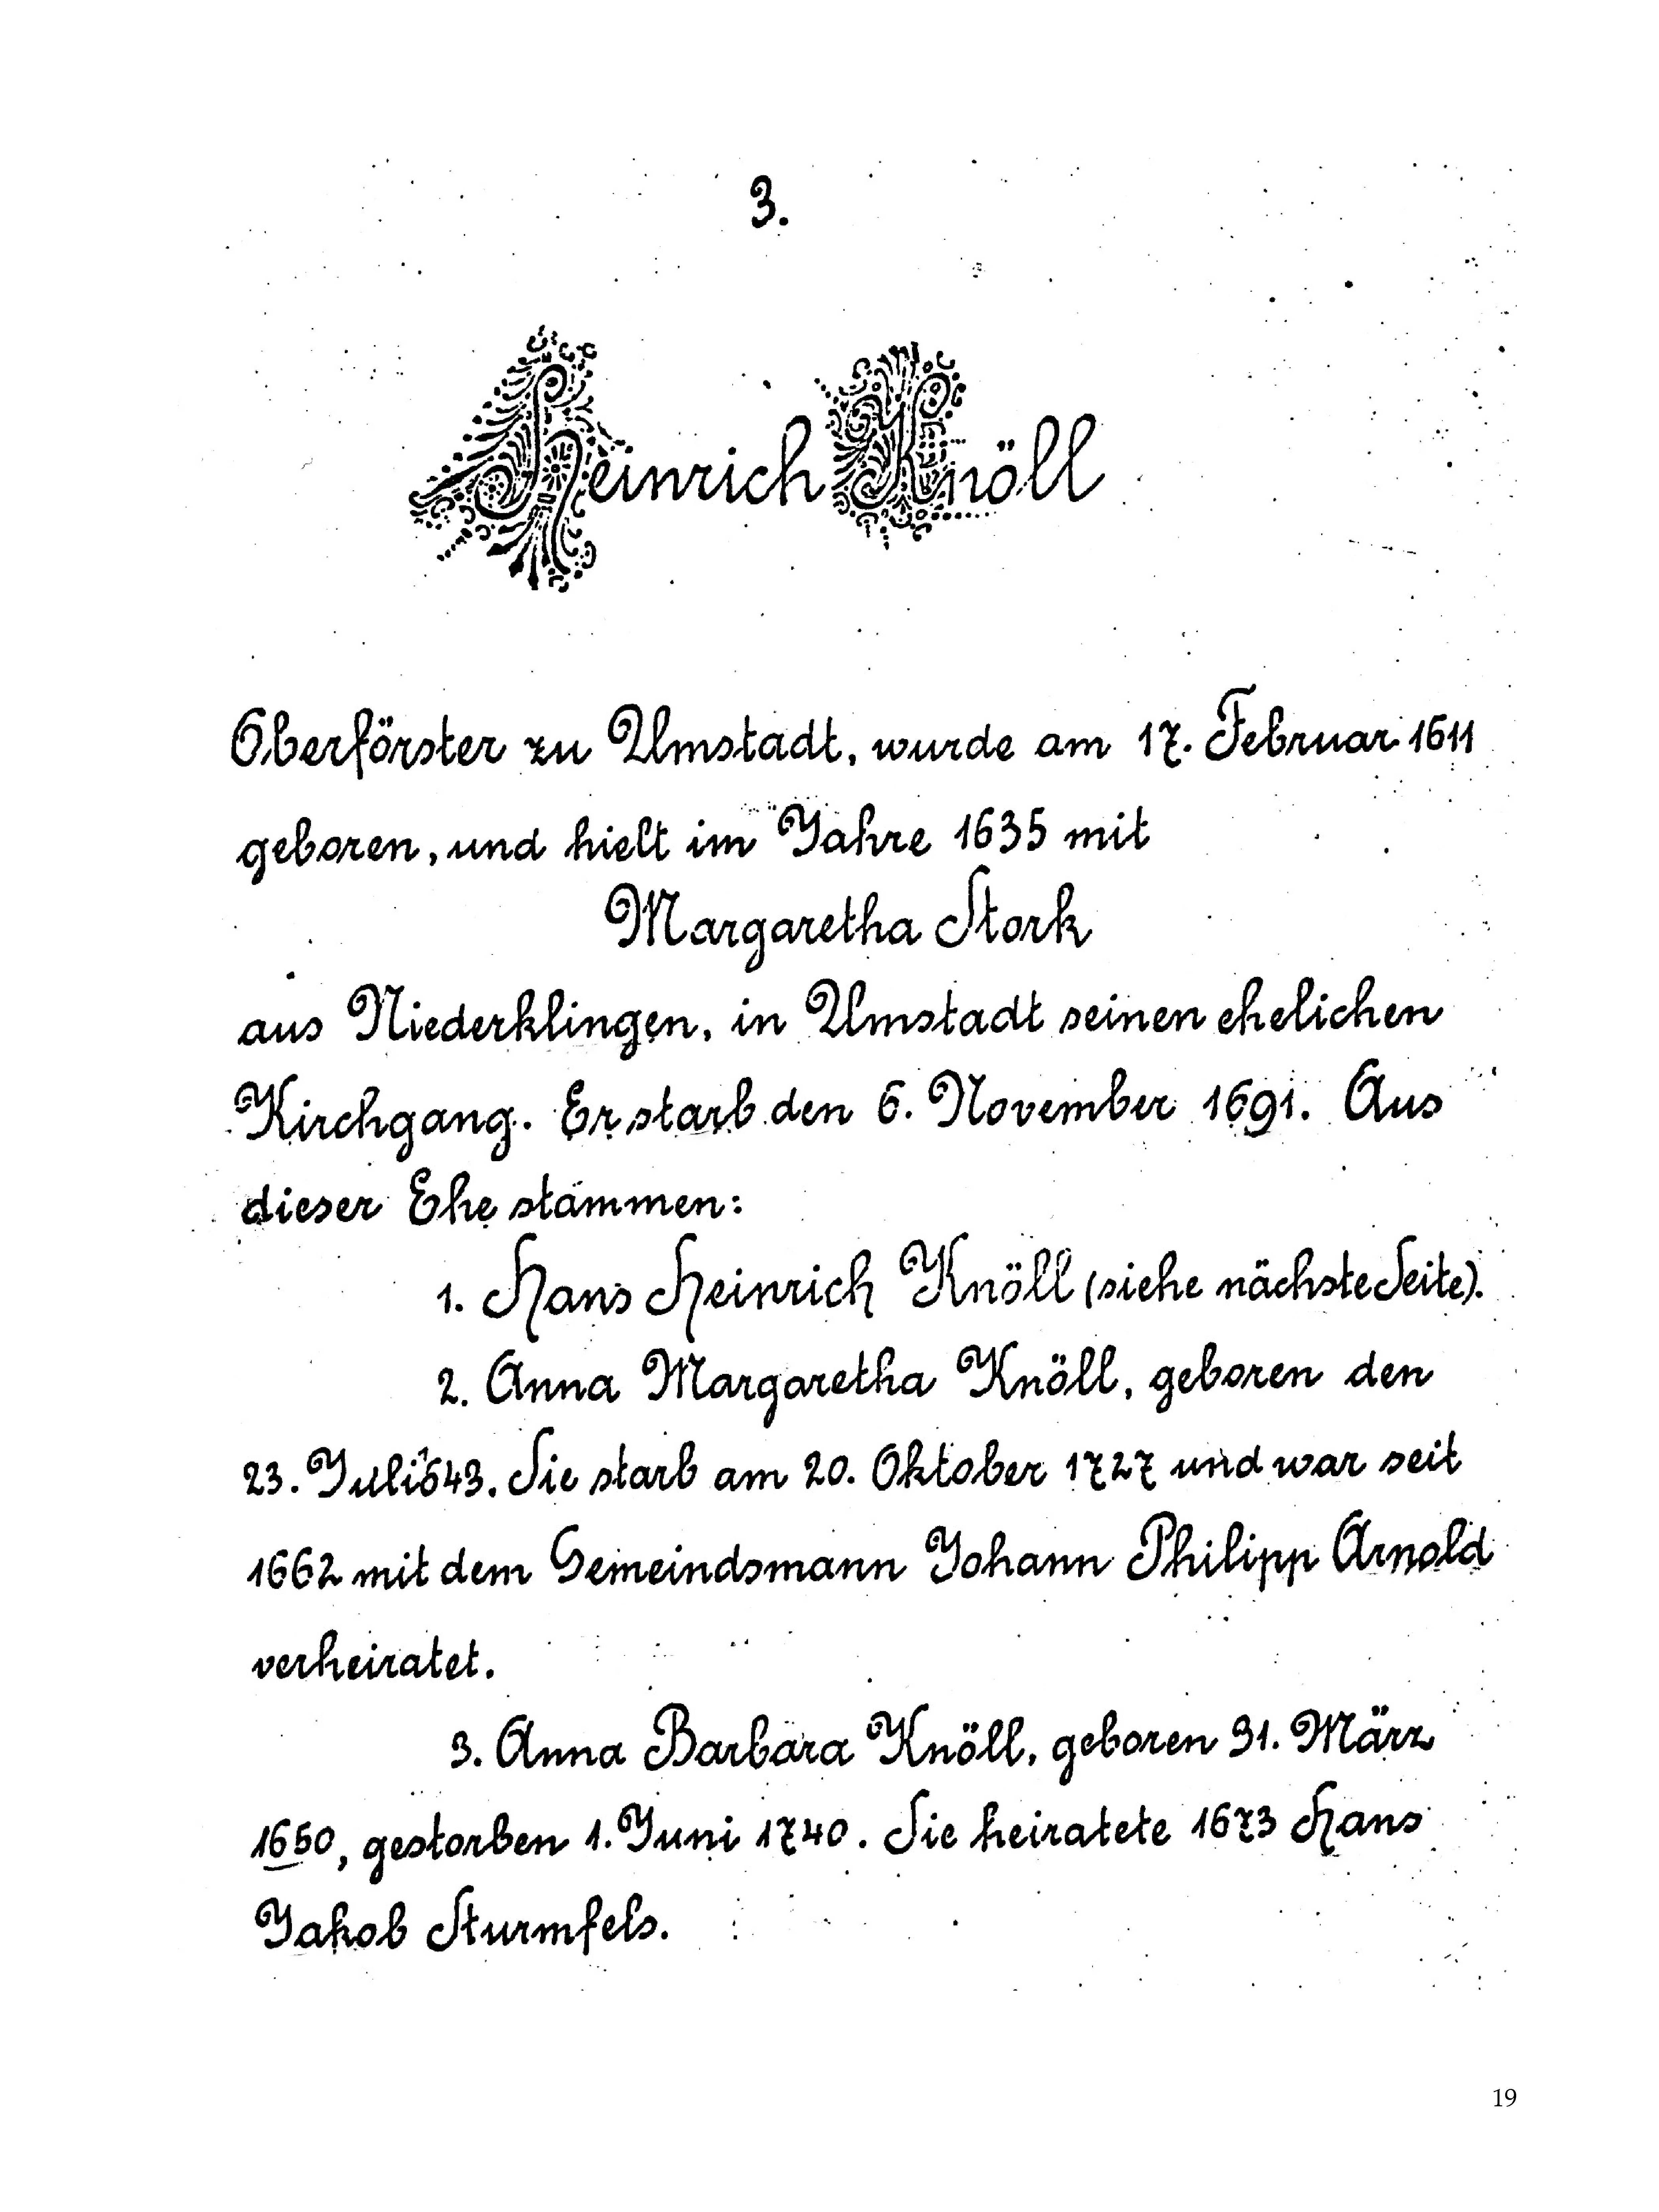 3.
Heinrich Knöll
Oberförster zu Umstadt, wurde am 17. Februar 1611
geboren, und hielt im Jahre 1635 mit
Margaretha Stork
aus Niederklingen, in Umstadt seinen ehelichen
Kirchgang. Er starb den 6. November 1691. Aus
dieser Ehe stammen:
1. Hans Heinrich Knöll (siehe nächste Seite).
2. Anna Margaretha Knöll, geboren den
23. Juli 1643. Sie starb am 20. Oktober 1727 und war seit
1662 mit dem Gemeindsmann Johann Philipp Arnold
verheiratet.
3. Anna Barbara Knöll, geboren 31. März
1650, gestorben 1. Juni 1740. Sie heiratete 1673 Hans
Jakob Sturmfels.
19